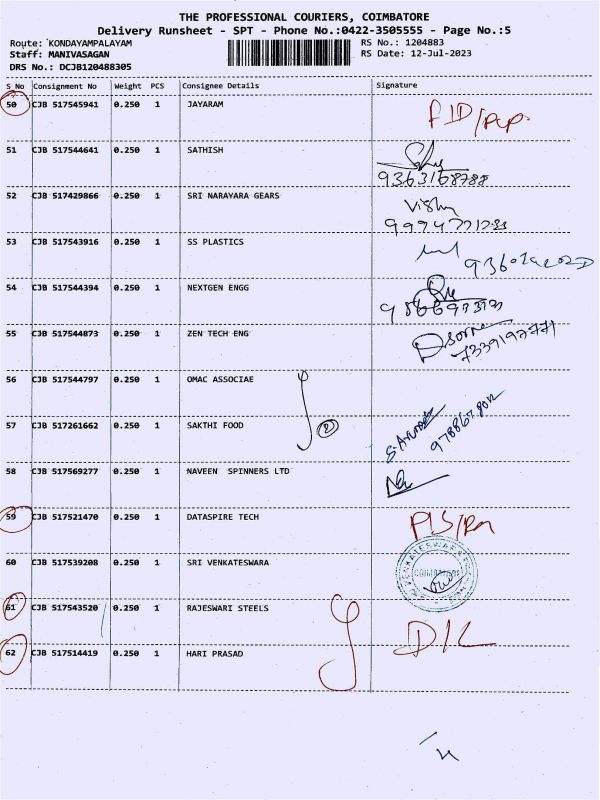 THE PROFESSIONAL COURIERS, COIMBATORE
Delivery Runsheet - SPT - Phone No.:0422-3505555 - Page No.:5
Route: KONDAYAMPALAYAM RS No.: 1204883
Staff: MANIVASAGAN RS Date: 12-Jul-2023
DRS No.: DCJB120488305
S No Consignment No Weight PCS Consignee Details Signature
50 CJB 517545941 0.250 1 JAYARAM
51 CJB 517544641 0.250 1 SATHISH
9363168788
52 CJB 517429866 0.250 1 SRI NARAYARA GEARS
53 CJB 517543916 0.250 1 SS PLASTICS
54 CJB 517544394 0.250 1 NEXTGEN ENGG
55 CJB 517544873 0.250 1 ZEN TECH ENG
56 CJB 517544797 0.250 1 OMAC ASSOCIAE
57 CJB 517261662 0.250 1 SAKTHI FOOD 2
58 CJB 517569277 0.250 1 NAVEEN SPINNERS LTD
59 CJB 517521470 0.250 1 DATASPIRE TECH
60 CJB 517539208 0.250 1 SRI VENKATESWARA
61 CJB 517543520 0.250 1 RAJESWARI STEELS
D/L
62 CJB 517514419 0.250 1 HARI PRASAD